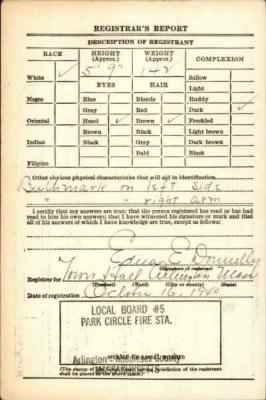 REGISTRAR'S REPORT
DESCRIPTION OF REGISTRANT
RACE HEIGHT (Approx.) WEIGHT (Approx.) COMPLEXION
White ✓ 5' 9" 142 Sallow
EYES HAIR Light
Negro Blue Blonde Ruddy ✓
Gray Red Dark
Oriental Hazel ✓ Brown ✓ Freckled
Brown Black Light brown
Indian Black Gray Dark brown
Bald Black
Filipino
Other obvious physical characteristics that will aid in identification.
Birthmark on left side
" " right arm
I certify that my answers are true; that the person registered has read or has had read to him his own answers; that I have witnessed his signature or mark and that all of his answers of which I have knowledge are true, except as follows:
Edna E Donnelly
(Signature of registrar)
Registrar for Town Hall Arlington Mass
(Precinct) (Ward) (City or county) (State)
Date of registration October 16, 1940
LOCAL BOARD #5
PARK CIRCLE FIRE STA.
Arlington - Middlesex County
MASSACHUSETTS
(STAMP OF LOCAL BOARD)
(The stamp of the Local Board having jurisdiction of the registrant
shall be placed in the above space.)